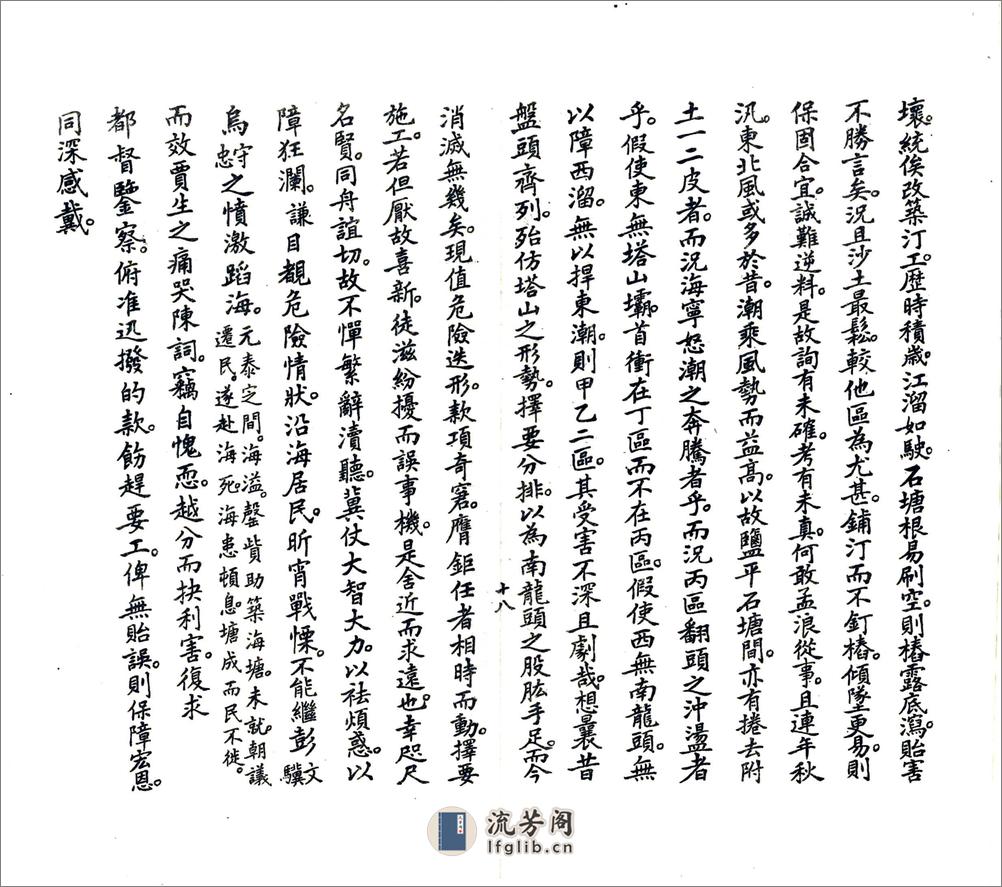 壞。統俟改築汀工。歷時積歲。江溜如駛。石塘根易刷空。則樁露底瀉。貽害
不勝言矣。況且沙土最鬆。較他區為尤甚。鋪汀而不釘樁。傾墜更易。則
保固合宜。誠難逆料。是故詢有未確。考有未真。何敢孟浪從事。且連年秋
汛。東北風或多於昔。潮乘風勢而益高。以故鹽平石塘間。亦有捲去附
土一二皮者。而況海寧怒潮之奔騰者乎。而況丙區翻頭之沖盪者
乎。假使東無塔山壩。首衝在丁區而不在丙區。假使西無南龍頭。無
以障西溜。無以捍東潮。則甲乙二區。其受害不深且劇哉。想曩昔
盤頭齊列。殆仿塔山之形勢。擇要分排。以為南龍頭之股肱手足。而今
十八
消滅無幾矣。現值危險迭形。款項奇窘。膺鉅任者。相時而動。擇要
施工。若但厭故喜新。徒滋紛擾而誤事機。是舍近而求遠也。幸咫尺
名賢。同舟誼切。故不憚繁辭瀆聽。冀仗大智大力。以祛煩惑。以
障狂瀾。謙目覩危險情狀。沿海居民。昕宵戰慄。不能繼彭文驥
烏守忠之憤激蹈海。元泰定間。海溢。罄貲助築海塘。未就。朝議遷民。遂赴海死。海患頓息。塘成而民不徙。
而效賈生之痛哭陳詞。竊自愧恧。越分而抉利害。復求
都督鑒察。俯准迅撥的款。飭趕要工。俾無貽誤。則保障宏恩。
同深感戴。
流芳阁
lfglib.cn